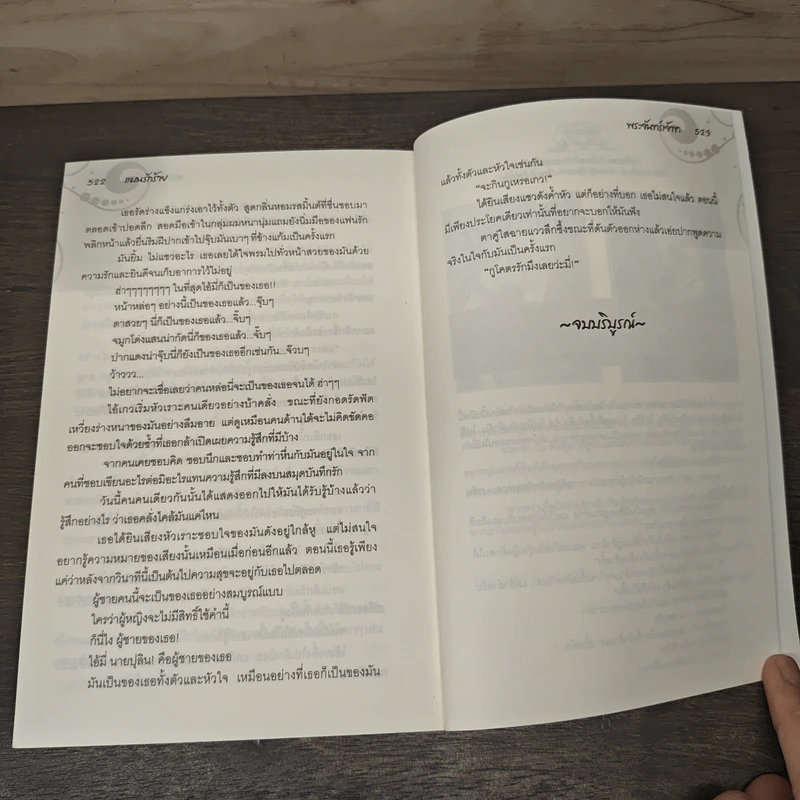 522 แผนรักร้าย
เธอรัดร่างแข็งแกร่งเอาไว้ทั้งตัว สูดกลิ่นหอมรสมิ้นต์ที่ชื่นชอบมา
ตลอดเข้าปอดลึก สอดมือเข้าในกลุ่มผมหนานุ่มแถมยังนิ่มมือของแฟนรัก
พลิกหน้าแล้วยื่นริมฝีปากเข้าไปจุ๊บมันเบาๆ ที่ข้างแก้มเป็นครั้งแรก
มันยิ้ม ไม่แซวอะไร เธอเลยได้ใจพรมไปทั่วหน้าสวยของมันด้วย
ความรักและยินดีจนเก็บอาการไว้ไม่อยู่
ฮ่าๆๆๆๆๆๆๆ ในที่สุดไอ้มี่ก็เป็นของเธอ!!
หน้าหล่อๆ อย่างนี้เป็นของเธอแล้ว...จุ๊บๆ
ตาสวยๆ นี่ก็เป็นของเธอแล้ว...จุ๊บๆ
จมูกโด่งแสนน่ากัดนี่ก็ของเธอแล้ว...จุ๊บๆ
ปากแดงน่าจุ๊บนี่ก็ยังเป็นของเธออีกเช่นกัน...จ๊วบๆ
ว้าววว...
ไม่อยากจะเชื่อเลยว่าคนหล่อนี่จะเป็นของเธอจนได้ ฮ่าๆๆ
ไอ้เกวเริ่มหัวเราะคนเดียวอย่างบ้าคลั่ง ขณะที่ยังกอดรัดฟัด
เหวี่ยงร่างหนาของมันอย่างลืมอาย แต่ดูเหมือนคนด้านใต้จะไม่คิดขัดคอ
ออกจะชอบใจด้วยซ้ำที่เธอกล้าเปิดเผยความรู้สึกที่มีบ้าง
จากคนเคยชอบคิด ชอบนึกและชอบทำท่าหื่นกับมันอยู่ในใจ จาก
คนที่ชอบเขียนอะไรต่อมิอะไรแทนความรู้สึกที่มีลงบนสมุดบันทึกรัก
วันนี้คนคนเดียวกันนั้นได้แสดงออกไปให้มันได้รับรู้บ้างแล้วว่า
รู้สึกอย่างไร ว่าเธอคลั่งไคล้มันแค่ไหน
เธอได้ยินเสียงหัวเราะชอบใจของมันดังอยู่ใกล้หู แต่ไม่สนใจ
อยากรู้ความหมายของเสียงนั้นเหมือนเมื่อก่อนอีกแล้ว ตอนนี้เธอรู้เพียง
แค่ว่าหลังจากวินาทีนี้เป็นต้นไปความสุขจะอยู่กับเธอไปตลอด
ผู้ชายคนนี้จะเป็นของเธออย่างสมบูรณ์แบบ
ใครว่าผู้หญิงจะไม่มีสิทธิ์ใช้คำนี้
ก็นี่ไง ผู้ชายของเธอ!
ไอ้มี่ นายปุลิน! คือผู้ชายของเธอ
มันเป็นของเธอทั้งตัวและหัวใจ เหมือนอย่างที่เธอก็เป็นของมัน
523
แล้วทั้งตัวและหัวใจเช่นกัน
“จะกินกูเหรอเกว!”
ได้ยินเสียงแซวดังค้ำหัว แต่ก็อย่างที่บอก เธอไม่สนใจแล้ว ตอนนี้
มีเพียงประโยคเดียวเท่านั้นที่อยากจะบอกให้มันฟัง
ตาคู่ใสฉายแววลึกซึ้งขณะที่ดันตัวออกห่างแล้วเอ่ยปากพูดความ
จริงในใจกับมันเป็นครั้งแรก
“กูโคตรรักมึงเลยว่ะมี่!”
~จบบริบูรณ์~